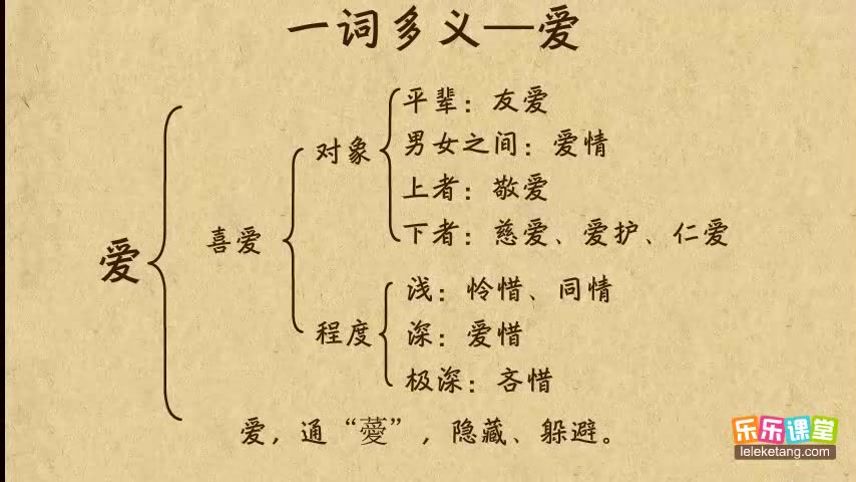 一词多义—爱
平辈：友爱
对象
男女之间：爱情
上者：敬爱
喜爱
下者：慈爱、爱护、仁爱
爱
浅：怜惜、同情
程度
深：爱惜
极深：吝惜
爱，通“薆”，隐藏、躲避。
乐乐课堂
leleketang.com